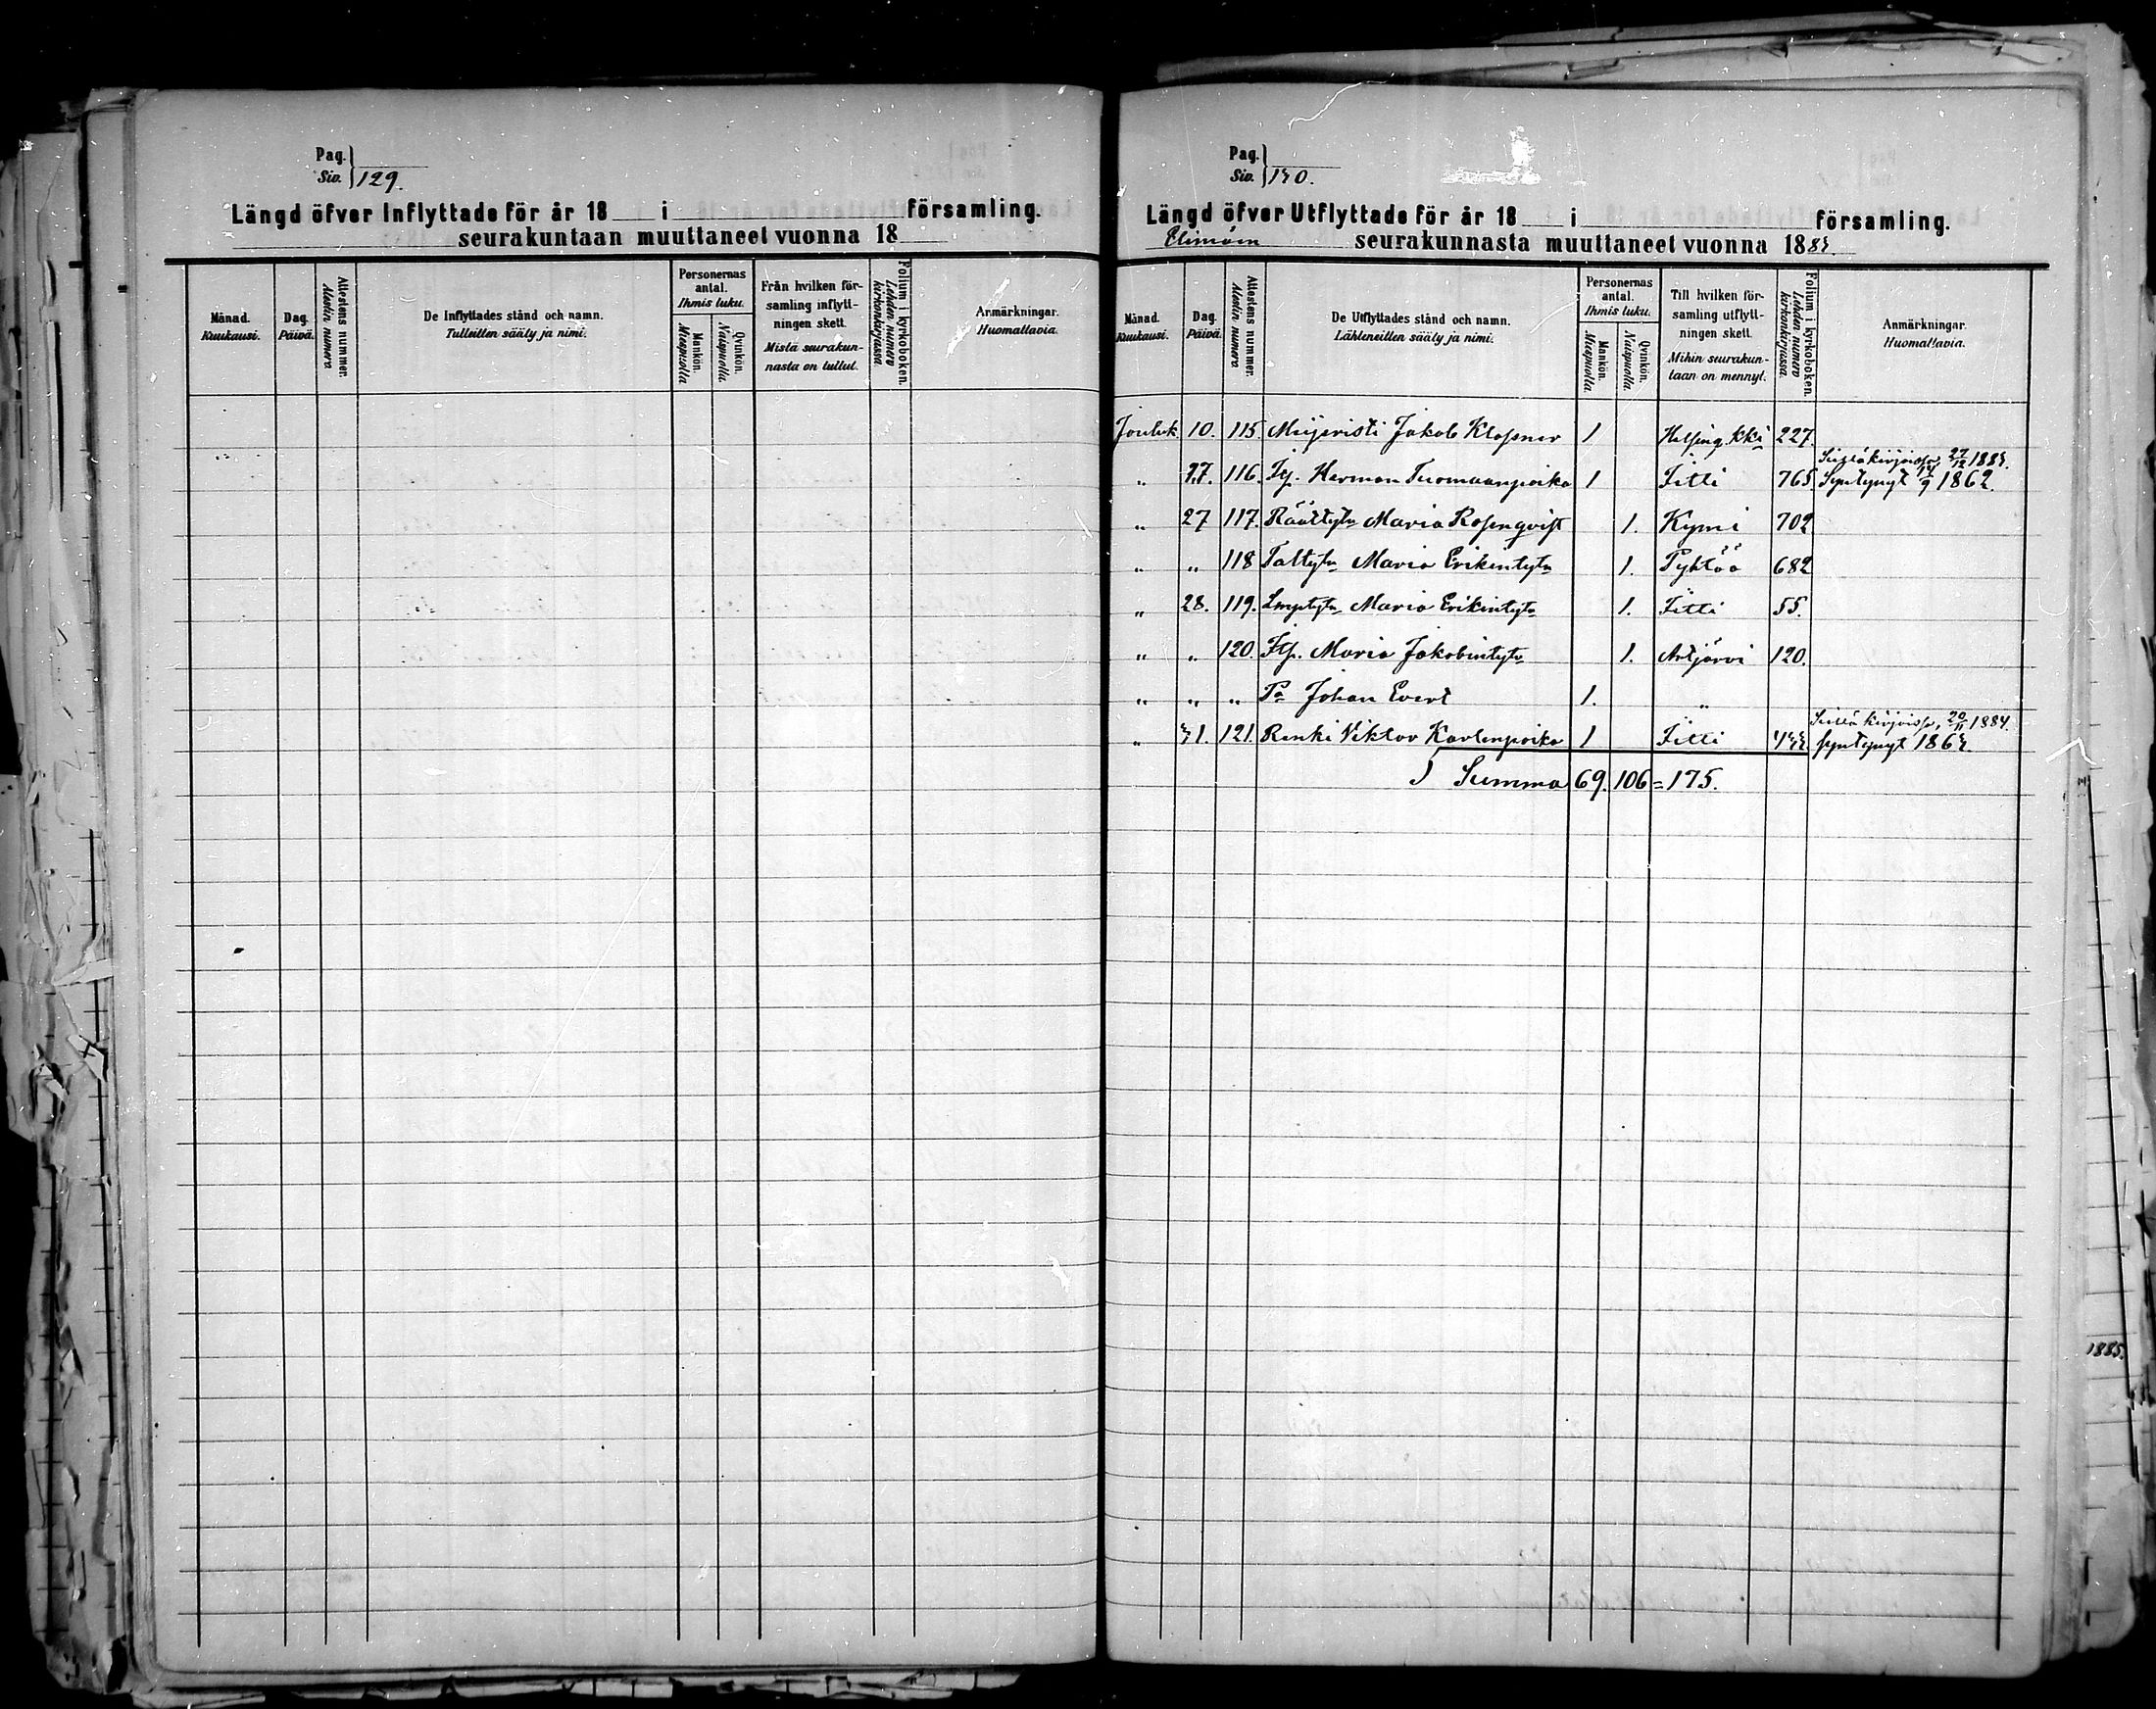 Pag.
Siv. 129.
Längd öfver Inflyttade för år 18 i församling.
seurakuntaan muuttaneet vuonna 18
Månad. Kuukausi.
Dag. Päivä.
Attestens nummer. Alestin numero
De Inflyttades stånd och namn. Tulleitten sääty ja nimi.
Personernas antal. Ihmis luku.
Mankön. Miespuolia
Qvinkön. Naispuolia
Från hvilken församling inflyttningen skett. Mistä seurakunnasta on tullut.
Folium i kyrkoboken. Lehden numero kirkonkirjassa.
Anmärkningar. Huomattavia.
Pag.
Siv. 130.
Längd öfver Utflyttade för år 18 i församling.
Elimäen seurakunnasta muuttaneet vuonna 1883.
Månad. Kuukausi.
Dag. Päivä.
Attestens nummer. Alestin numero
De Utflyttades stånd och namn. Lähteneitten sääty ja nimi.
Personernas antal. Ihmis luku.
Mankön. Miespuolia
Qvinkön. Naispuolia
Till hvilken församling utflyttningen skett. Mihin seurakuntaan on mennyt.
Folium i kyrkoboken. Lehden numero kirkonkirjassa.
Anmärkningar. Huomattavia.
Jouluk. 10. 115. Meijeristi Jakob Klossner 1 Helsing. kki 227.
" 17. 116. Herman Tuomaanpoika 1 Iitti 765. 27/12 1883. Syntynyt 1862.
" 27 117. Räättityt. Maria Rosenqvist 1. Kymi 702
" " 118 Taltyt. Maria Erikintyt. 1. Pyhtää 682
" 28. 119. Lmptyt. Maria Erikintyt. 1. Iitti 55.
" " 120 Itp. Maria Jakobintyt. 1. Artjärvi 120.
" " " Pa Johan Evert 1. "
" 31. 121. Renki Viktor Karlenpoika 1 Iitti 20/11 1884. syntynyt 1863.
Summa 69. 106 = 175.
1885.